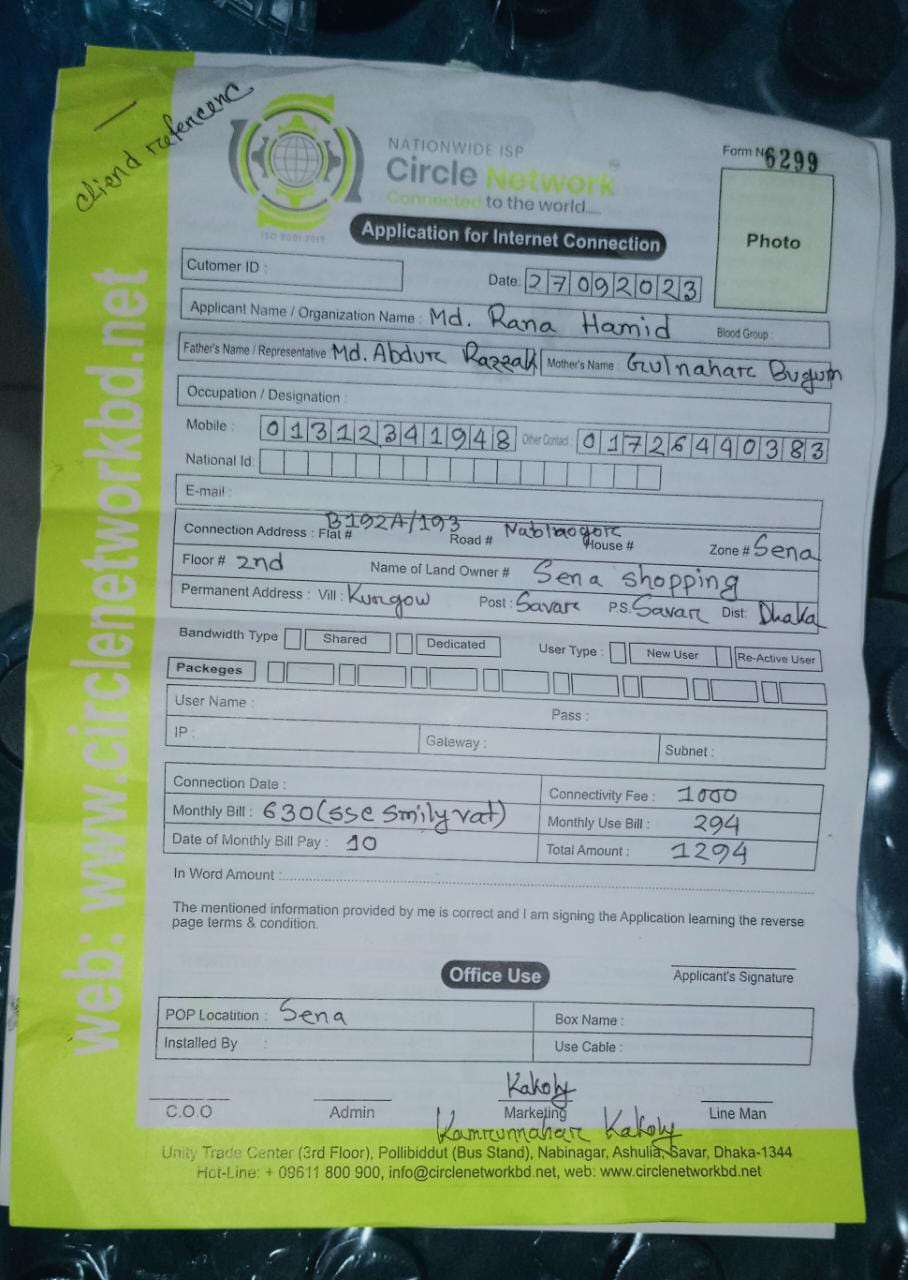 cliend refencenc
NATIONWIDE ISP
Circle Network
Connected to the world....
ISO 9001:2015
Form No 6299
Photo
Application for Internet Connection
Cutomer ID :
Date: 27092023
Applicant Name / Organization Name : Md. Rana Hamid Blood Group :
Father's Name / Representative Md. Abdur Razzak Mother's Name : Gulnahar Bugum
Occupation / Designation :
Mobile : 01312341948 Other Contact : 01726440383
National Id:
E-mail :
Connection Address : Flat # B192A/193 Road # House # Zone # Sena
Floor # 2nd Name of Land Owner # Sena shopping
Permanent Address : Vill : Kurgow Post : Savar P.S. Savar Dist: Dhaka
Bandwidth Type Shared Dedicated User Type : New User Re-Active User
Packeges
User Name : Pass :
IP : Gateway : Subnet :
Connection Date : Connectivity Fee : 1000
Monthly Bill : 630 (sse smily vat) Monthly Use Bill : 294
Date of Monthly Bill Pay : 10 Total Amount : 1294
In Word Amount :
The mentioned information provided by me is correct and I am signing the Application learning the reverse
page terms & condition.
Applicant's Signature
Office Use
POP Locatition : Sena Box Name :
Installed By : Use Cable :
Kakoly
C.O.O Admin Marketing Line Man
Kamrunnahar Kakoly
Unity Trade Center (3rd Floor), Pollibiddut (Bus Stand), Nabinagar, Ashulia, Savar, Dhaka-1344
Hot-Line: + 09611 800 900, info@circlenetworkbd.net, web: www.circlenetworkbd.net
web: www.circlenetworkbd.net